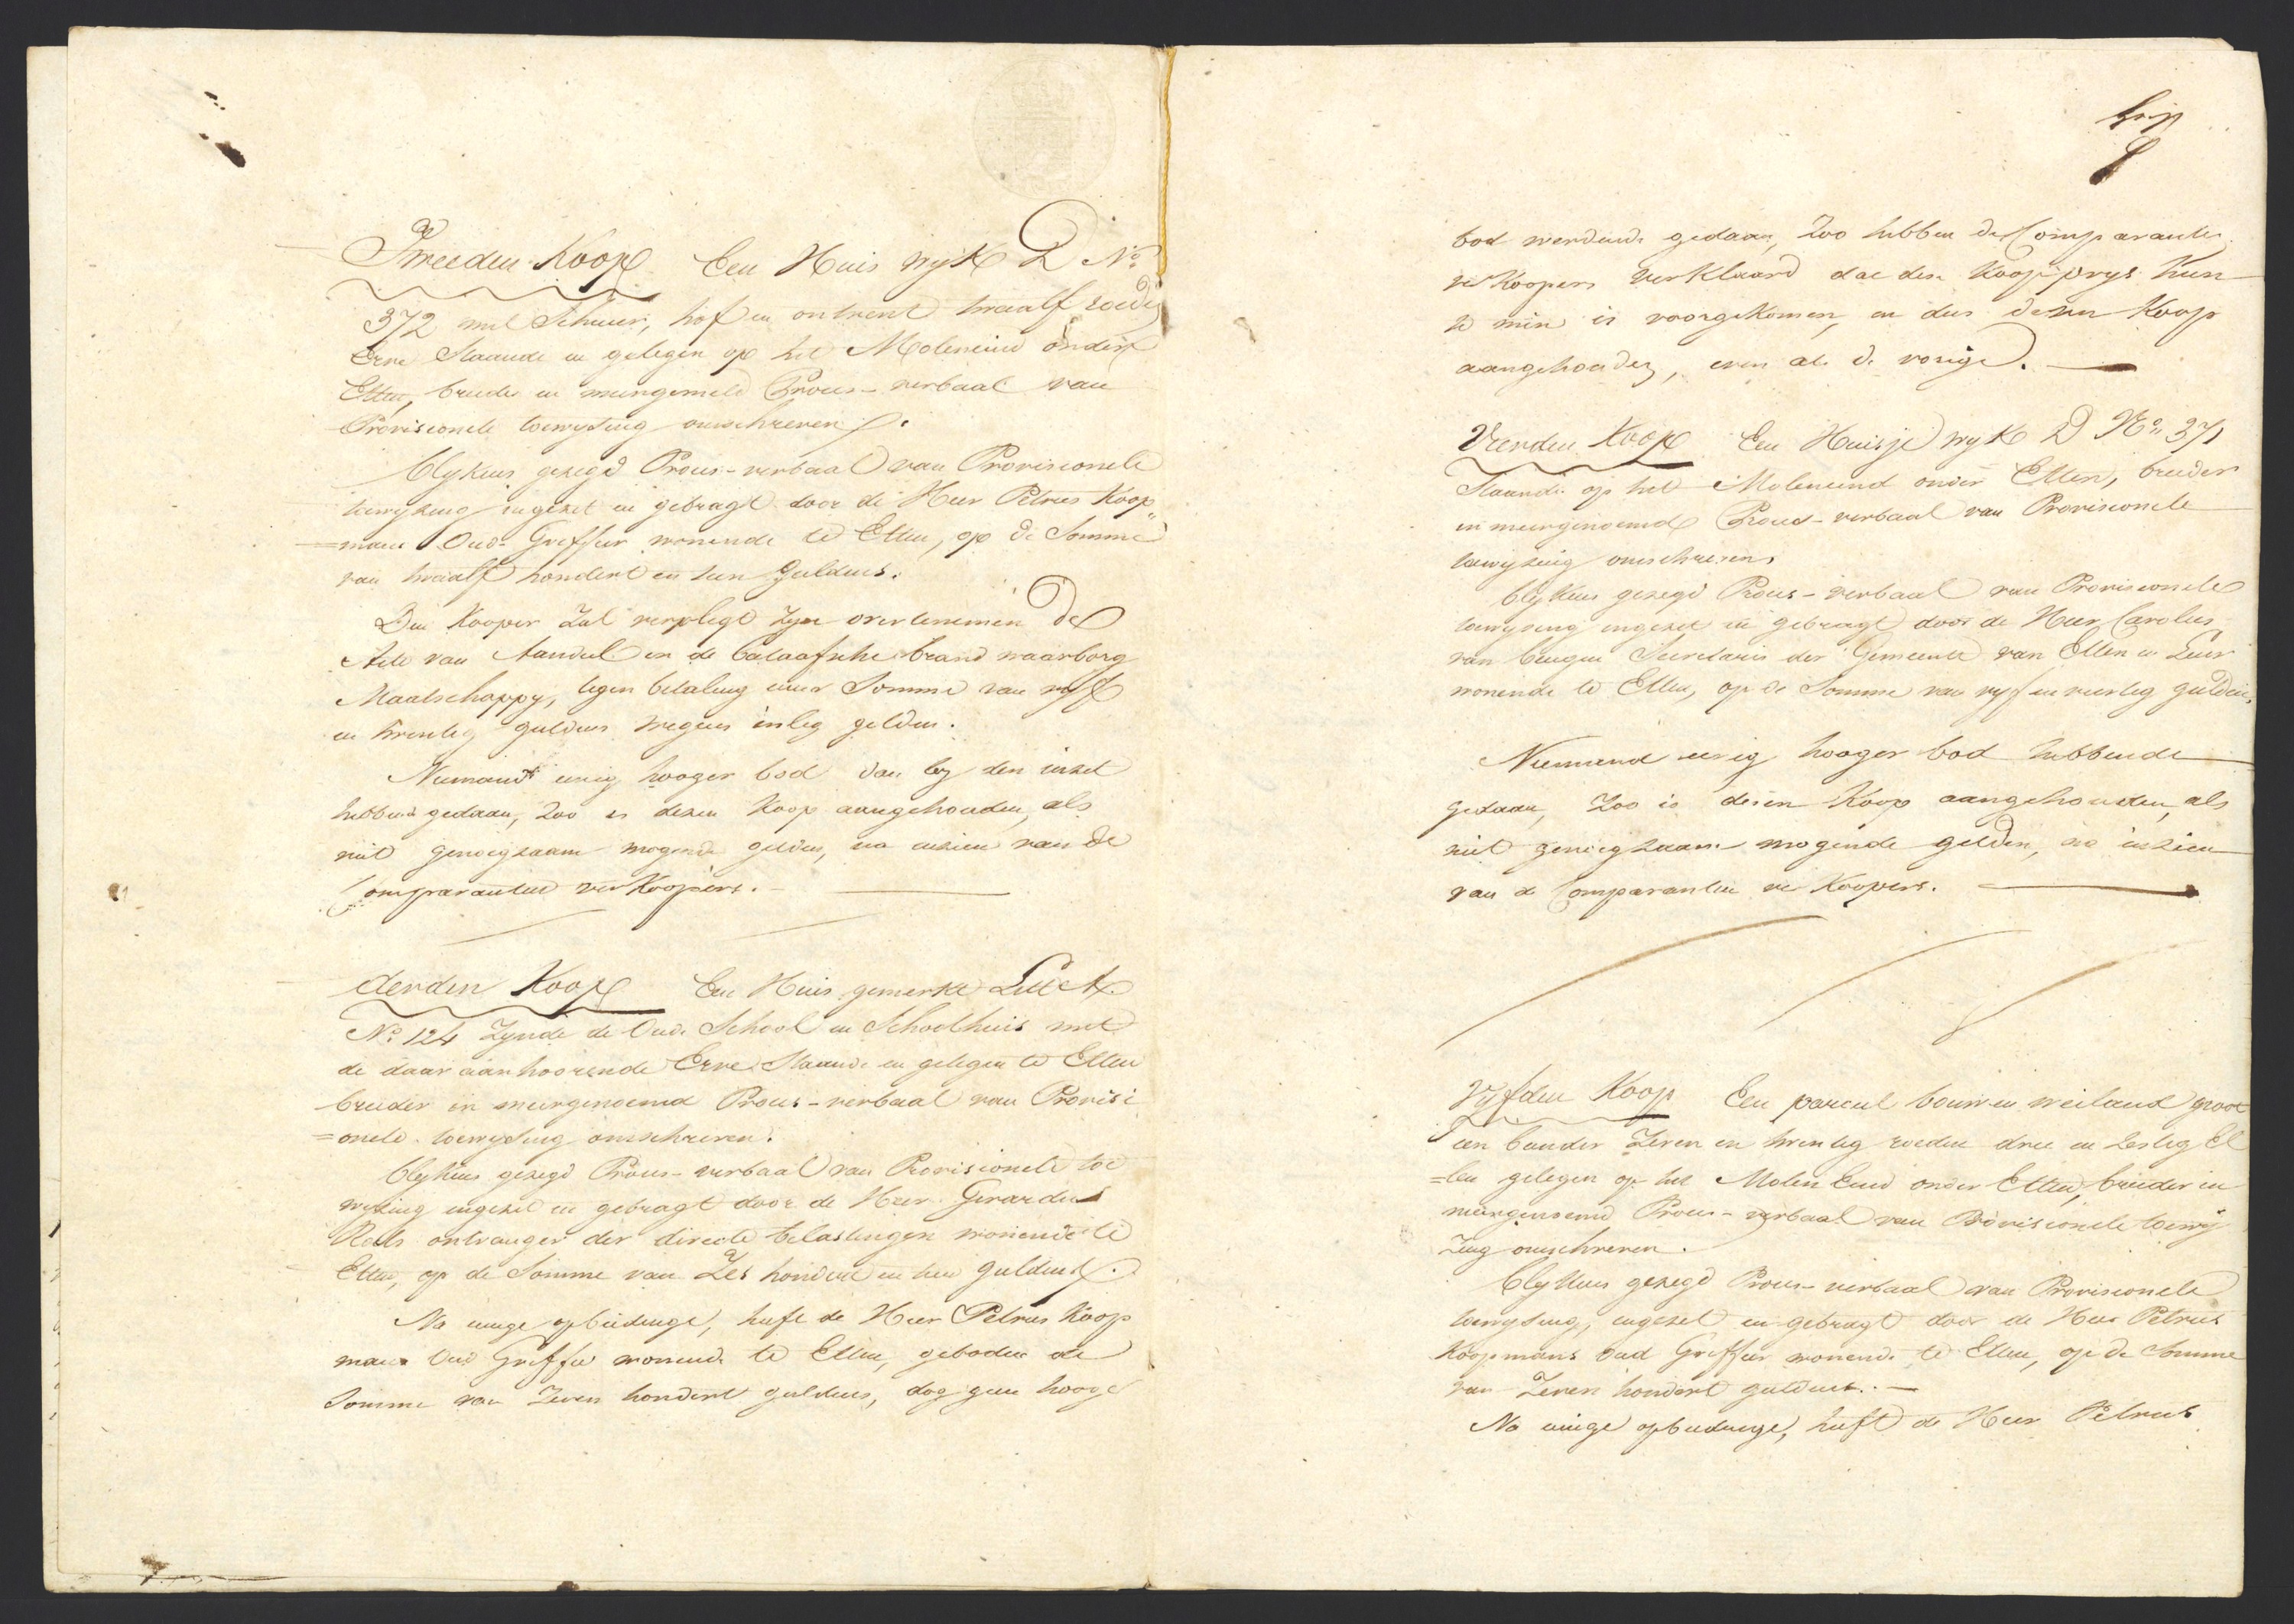 Tweeden Koop Een Huis wyk D No
372 met Schuur, hof en ontrent twaalf roedes
Erve Staande en gelegen op het Moleneind onder
Etten, breeder in meergemeld Proces-verbaal van
Provisionele toewyzing omschreven.
Blykens gezegd Proces-verbaal van Provisionele
toewyzing ingezet en gebragt door de Heer Petrus Koop„
=mans Oud-Greffier wonende te Etten, op de Somme
van twaalf hondert en tien Guldens.
Den Kooper Zal verplegt Zyn overtenemen De
Acte van Aandeel in de bataafsche brand waarborg
Maatschappy, tegen betaling eener Somme van vyf
en twentig guldens wegens inleg gelden.
Niemand eenig hooger bod dan by den inzet
hebbend gedaan, Zoo is dezen Koop aangehouden, als
niet genoegzaam mogende gelden, na inzien van de
Comparanten verKoopers.
derden Koop Een Huis gemerkt Litt A.
No 124 Zynde de Oude School en Schoolhuis met
de daar aanhoorende Erve Staande en gelegen te Etten
breeder in meergenoemd Proces-verbaal van Provisi
=onele toewyzing omschreven.
Blykens gezegd Proces-verbaal van Provisionele toe
wyzing ingezet en gebragt door de Heer Gerardus
ontvanger der directe belastingen wonende te
Etten, op de Somme van Zes hondert en tien guldens.
Na eenige opbiedinge, heeft de Heer Petrus Koop
mans Oud Greffier wonende te Etten, geboden de
Somme van Zeven hondert guldens, dog geen hooger
bod werdende gedaan, Zoo hebben de Comparanten
verKoopers verKlaard dat den Koopprys hun
te min is voorgekomen, en dus dezen Koop
aangehouden, even als de vorige.
Vierden Koop Een Huisje wyk D No 371
Staande op het Moleneind onder Etten, breeder
in meergenoemd Proces-verbaal van Provisionele
toewyzing omschreven.
Blykens gezegd Proces-verbaal van Provisionele
toewyzing ingezet en gebragt door de Heer Carolus
van Secretaris der Gemeente van Etten en Leur
wonende te Etten, op de Somme van vyf en veertig guldens,
Niemand eenig hooger bod hebbende
gedaan, Zoo is dezen Koop aangehouden, als
niet genoegzaam mogende gelden, na inzien
van de Comparanten verKoopers.
Vyfden Koop Een parceel bouw en weiland groot
een bunder Zeven en twentig roeden drie en Zestig El
=len gelegen op het Molen Eind onder Etten, breeder in
meergenoemd Proces-verbaal van Provisionele toewy
Zing omschreven.
Blykens gezegd Proces-verbaal van Provisionele
toewyzing, ingezet en gebragt door de Heer Petrus
Koopmans Oud Greffier wonende te Etten, op de Somme
van Zeven hondert guldens.
Na eenige opbiedinge, heeft de Heer Petrus